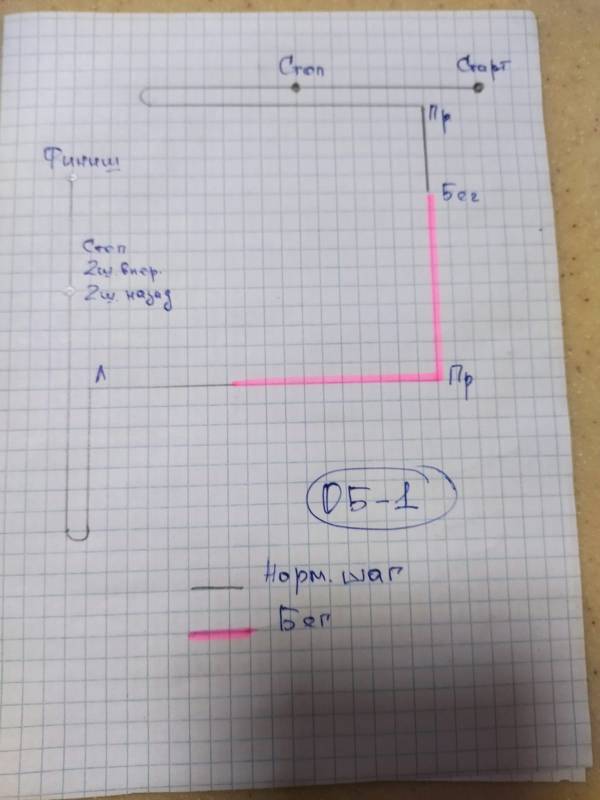 Стоп
Старт
Пр
Финиш
Бег
Стоп
2ш. впер.
2ш. назад
Л
Пр
ОБ-1
Норм. шаг
Бег